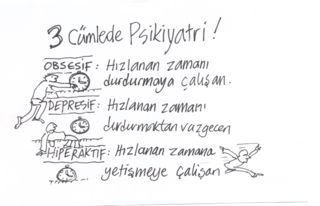 3 Cümlede Psikiyatri!
OBSESİF: Hızlanan zamanı
durdurmaya çalışan.
DEPRESİF: Hızlanan zamanı
durdurmaktan vazgeçen
HİPERAKTİF: Hızlanan zamana
yetişmeye çalışan